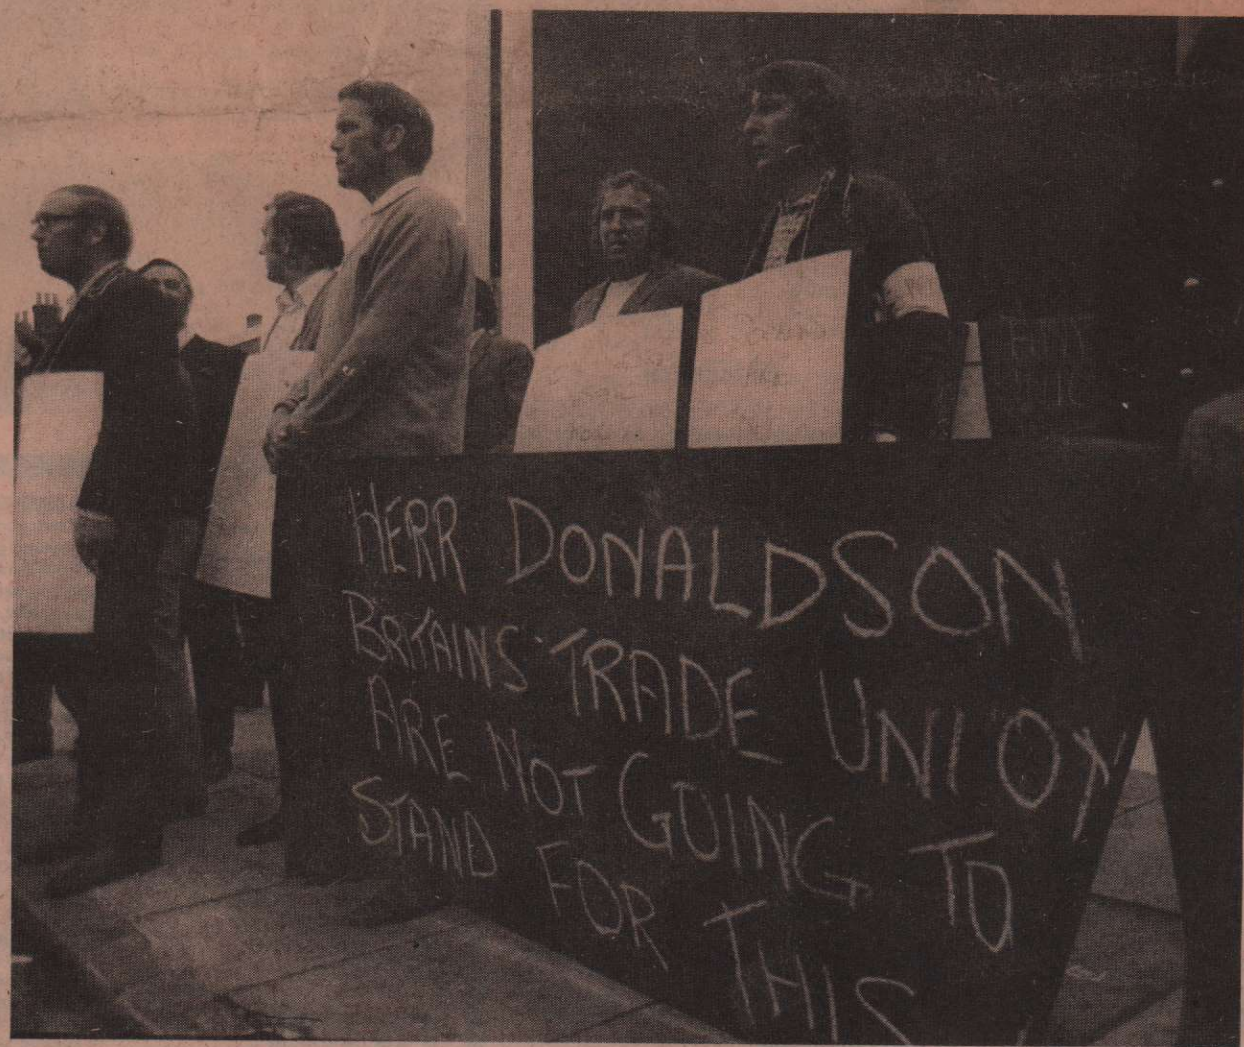 HERR DONALDSON
BRITAINS TRADE UNION
ARE NOT GOING TO
STAND FOR THIS